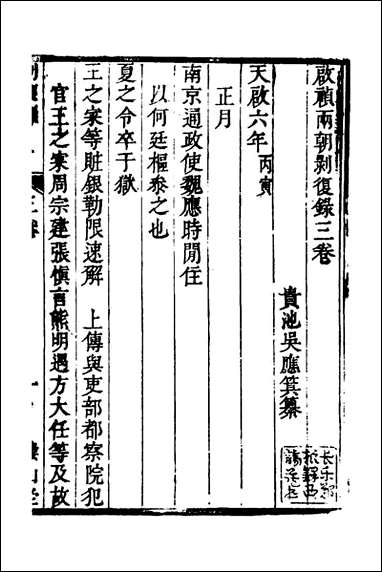 啟禎兩朝剝復錄三卷
貴池吳應箕纂
天啟六年丙寅
正月
南京通政使魏應時閒住
以何廷樞參之也
夏之令卒于獄
王之寀等贓銀勒限速解　上傳與吏部都察院犯
官王之寀周宗建張慎言熊明遇方大任等及故
三卷